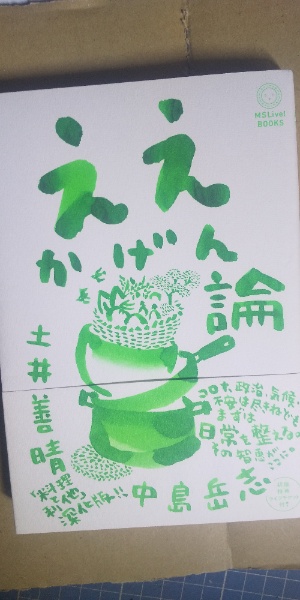 MSLive!
BOOKS
ええ
かげん
論
土井善晴
コロナ、政治、気候、
悔は尽きねども
まずは
日常を整える。
その智恵が
料理と
利他
深化版!!
中島岳志